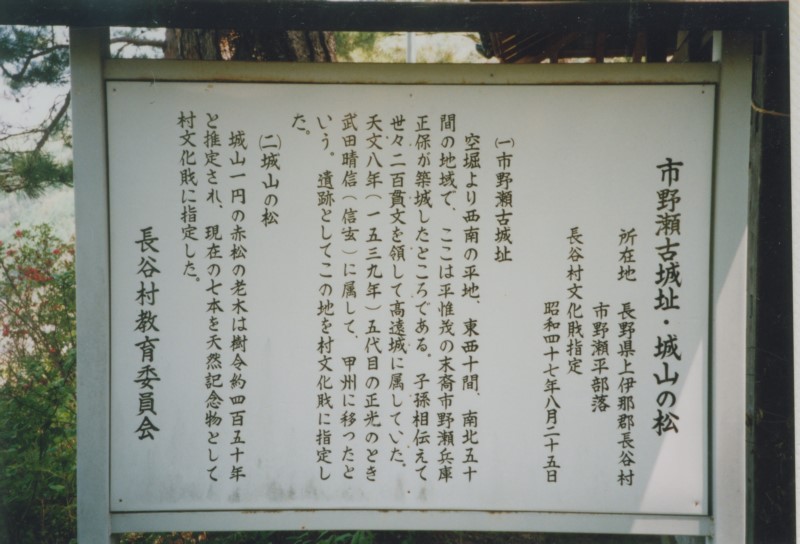 市野瀬古城址・城山の松
所在地　長野県上伊那郡長谷村
市野瀬平部落
長谷村文化財指定
昭和四十七年八月二十五日
㈠市野瀬古城址
空堀より西南の平地、東西十間、南北五十
間の地域で、ここは平惟茂の末裔市野瀬兵庫
正保が築城したところである。子孫相伝えて
世々二百貫文を領して高遠城に属していた。
天文八年(一五三九年)五代目の正光のとき
武田晴信(信玄)に属して、甲州に移つたと
いう。遺跡としてこの地を村文化財に指定し
た。
㈡城山の松
城山一円の赤松の老木は樹令約四百五十年
と推定され、現在の七本を天然記念物として
村文化財に指定した。
長谷村教育委員会